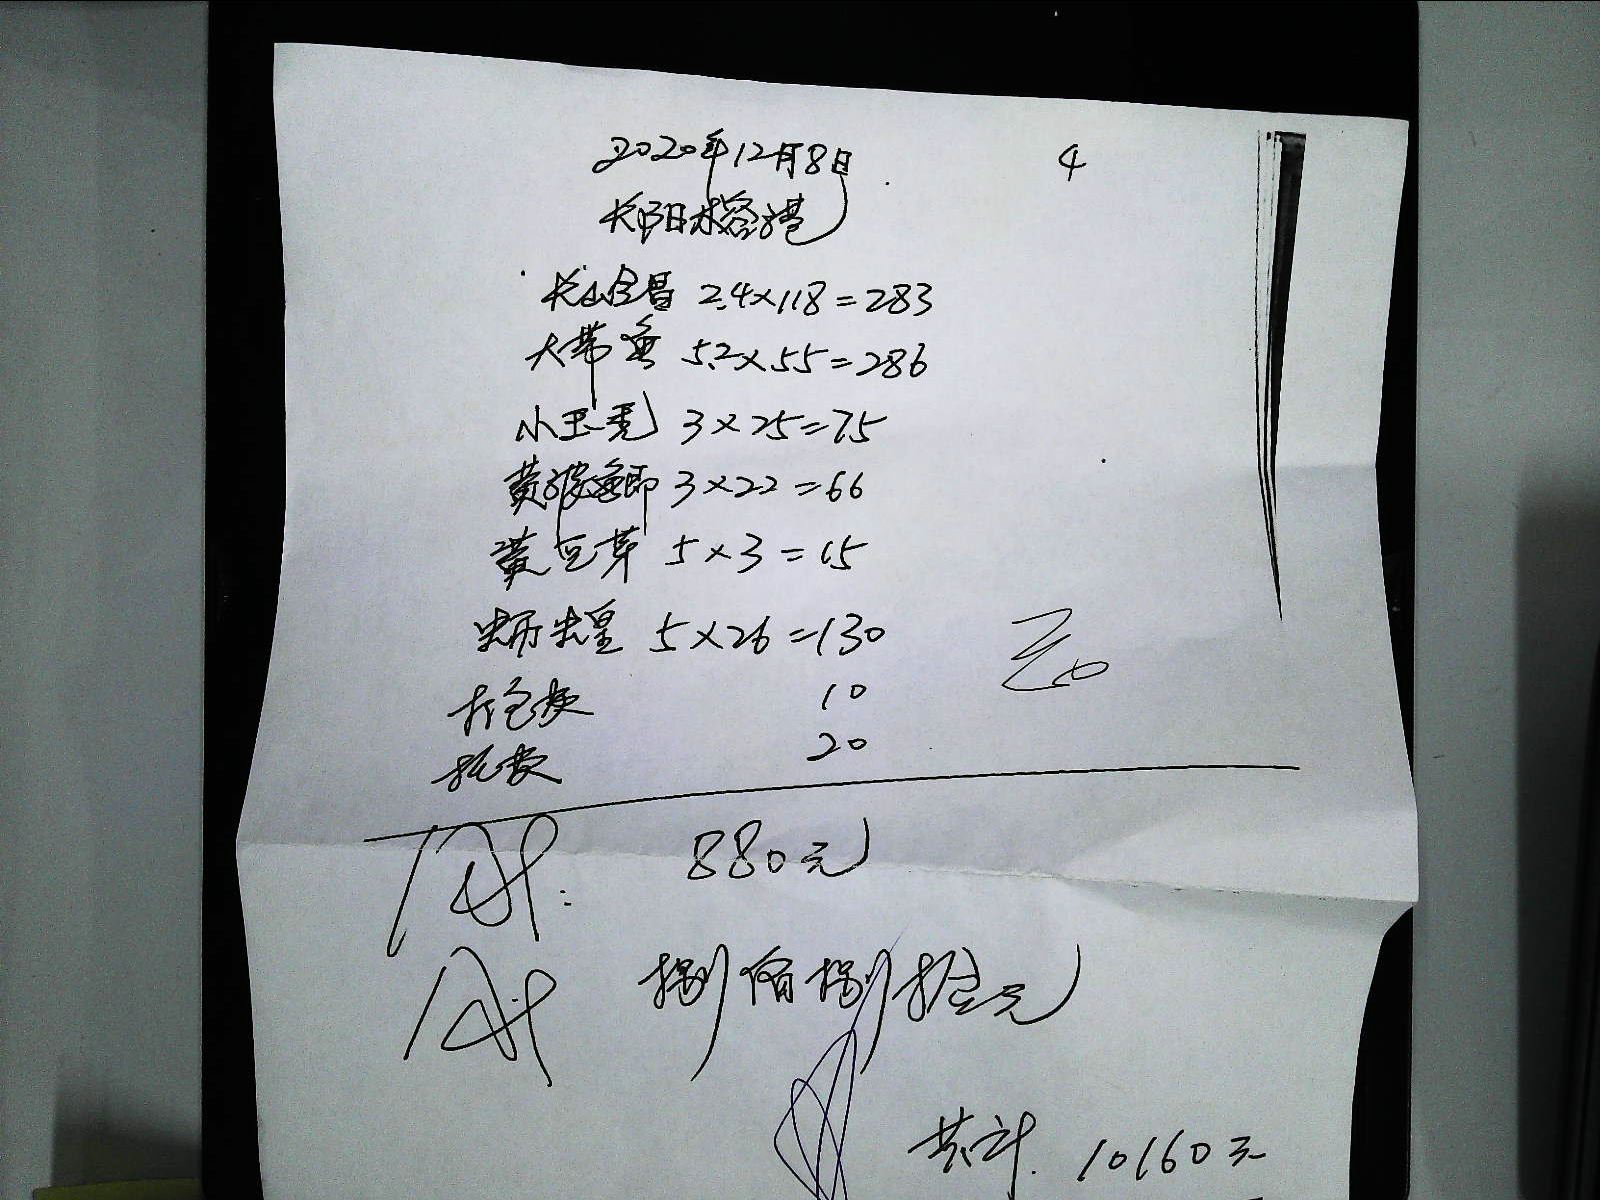 2020年12月8日 4
长阳水榕港
长山仓昌 2.4×118=283
大带鱼 5.2×55=286
小玉秃 3×25=75
黄波鱼即 3×22=66
黄豆芽 5×3=15
10
打包费
20
880元
捌佰捌拾元
共计. 10160元
5×26=130